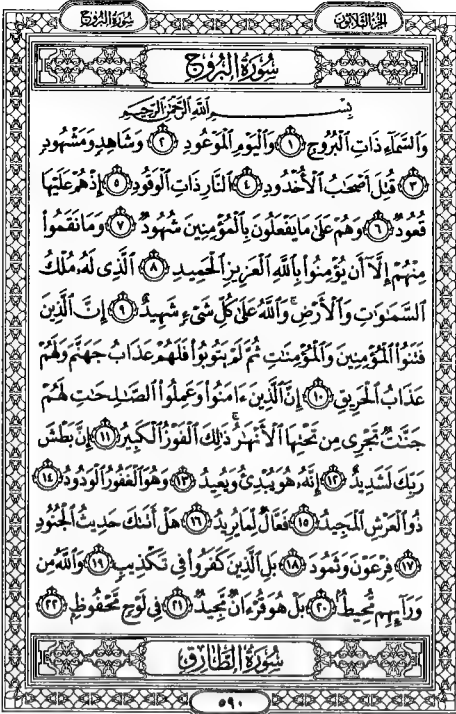 سُورَةُ البُرُوجِ
الجُزْءُ الثَّلَاثُونَ
سُورَةُ البُرُوجِ
بِسْمِ اللَّهِ الرَّحْمَنِ الرَّحِيمِ
وَالسَّمَآءِ ذَاتِ الْبُرُوجِ ١ وَالْيَوْمِ الْمَوْعُودِ ٢ وَشَاهِدٍ وَمَشْهُودٍ
٣ قُتِلَ أَصْحَٰبُ الْأُخْدُودِ ٤ النَّارِ ذَاتِ الْوَقُودِ ٥ إِذْ هُمْ عَلَيْهَا
قُعُودٌ ٦ وَهُمْ عَلَىٰ مَا يَفْعَلُونَ بِالْمُؤْمِنِينَ شُهُودٌ ٧ وَمَا نَقَمُوا۟
مِنْهُمْ إِلَّآ أَن يُؤْمِنُوا۟ بِاللَّهِ الْعَزِيزِ الْحَمِيدِ ٨ الَّذِى لَهُۥ مُلْكُ
السَّمَٰوَٰتِ وَالْأَرْضِ ۚ وَاللَّهُ عَلَىٰ كُلِّ شَىْءٍ شَهِيدٌ ٩ إِنَّ الَّذِينَ
فَتَنُوا۟ الْمُؤْمِنِينَ وَالْمُؤْمِنَٰتِ ثُمَّ لَمْ يَتُوبُوا۟ فَلَهُمْ عَذَابُ جَهَنَّمَ وَلَهُمْ
عَذَابُ الْحَرِيقِ ١٠ إِنَّ الَّذِينَ ءَامَنُوا۟ وَعَمِلُوا۟ الصَّٰلِحَٰتِ لَهُمْ
جَنَّٰتٌ تَجْرِى مِن تَحْتِهَا الْأَنْهَٰرُ ۚ ذَٰلِكَ الْفَوْزُ الْكَبِيرُ ١١ إِنَّ بَطْشَ
رَبِّكَ لَشَدِيدٌ ١٢ إِنَّهُۥ هُوَ يُبْدِئُ وَيُعِيدُ ١٣ وَهُوَ الْغَفُورُ الْوَدُودُ ١٤
ذُو الْعَرْشِ الْمَجِيدُ ١٥ فَعَّالٌ لِّمَا يُرِيدُ ١٦ هَلْ أَتَىٰكَ حَدِيثُ الْجُنُودِ
١٧ فِرْعَوْنَ وَثَمُودَ ١٨ بَلِ الَّذِينَ كَفَرُوا۟ فِى تَكْذِيبٍ ١٩ وَاللَّهُ مِن
وَرَآئِهِم مُّحِيطٌ ٢٠ بَلْ هُوَ قُرْءَانٌ مَّجِيدٌ ٢١ فِى لَوْحٍ مَّحْفُوظٍ ٢٢
سُورَةُ الطَّارِقِ
٥٩٠